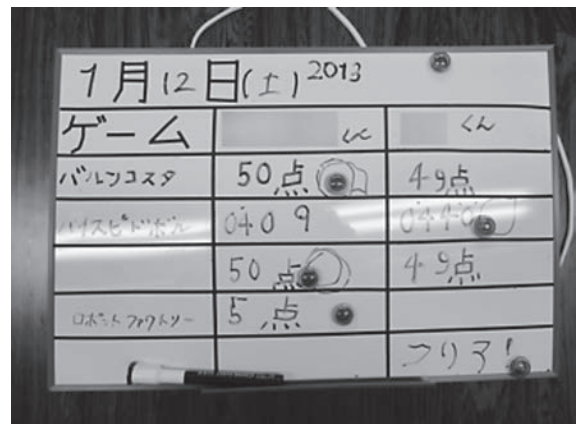 1月12日(土)2013
ゲーム くん くん
バルンコスタ 50点 49点
ハイスピードボール 0409 0440
50点 49点
ロボットファクトリー 5点
クリア!